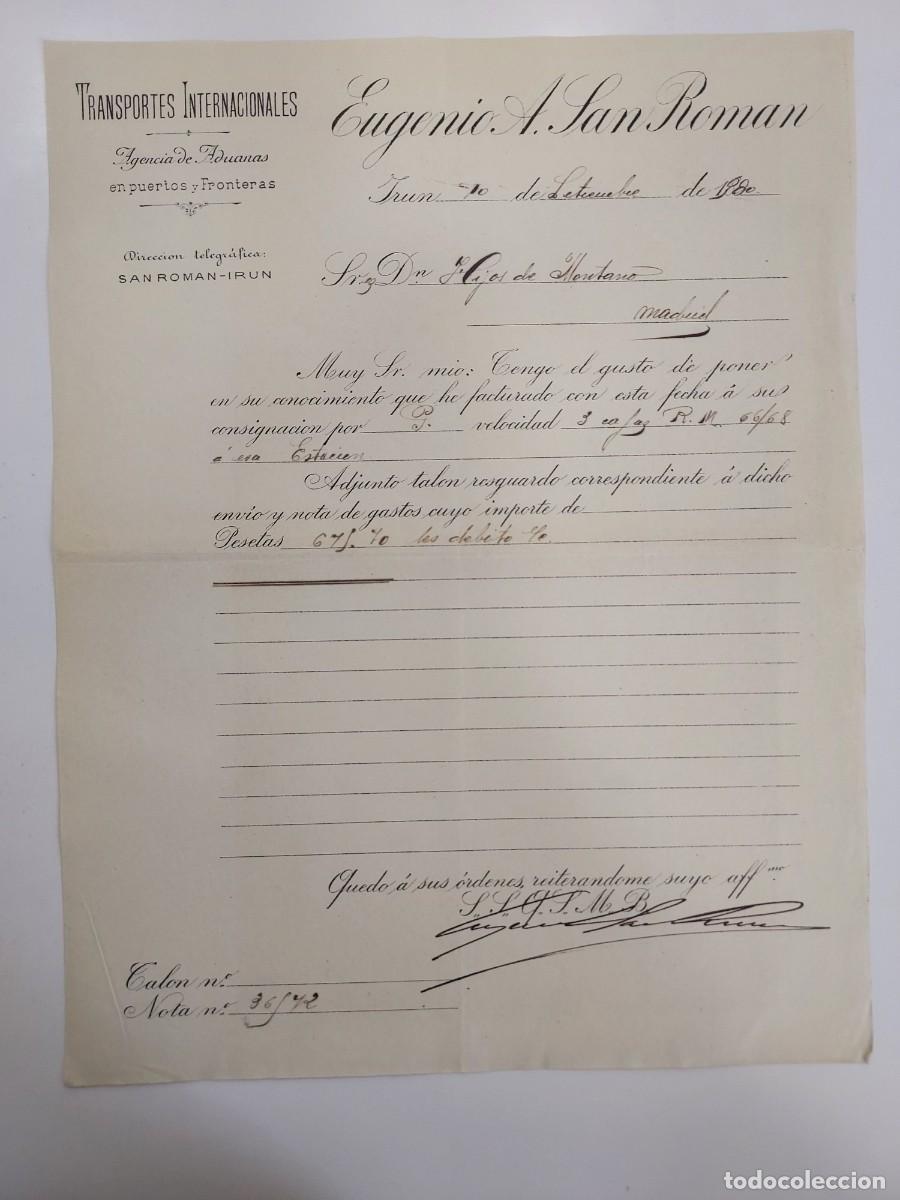 TRANSPORTES INTERNACIONALES
Agencia de Aduanas
en puertos y Fronteras
Direccion telegráfica:
SAN ROMAN-IRUN
Eugenio A. San Roman
Irun 10 de Setiembre de
Sres Dn Hijos de Montano
Madrid
Muy Sr. mio: Tengo el gusto de poner
en su conocimiento que he facturado con esta fecha á su
consignacion por P. velocidad 3 cajas R. M. 66/68
á esa Estacion
Adjunto talon resguardo correspondiente á dicho
envio y nota de gastos, cuyo importe de
Pesetas les debito
Quedo á sus órdenes, reiterandome suyo aff.mo
S. S. Q. S. M. B.
Eugenio A. San Roman
Talon nº.
Nota nº.
todocoleccion